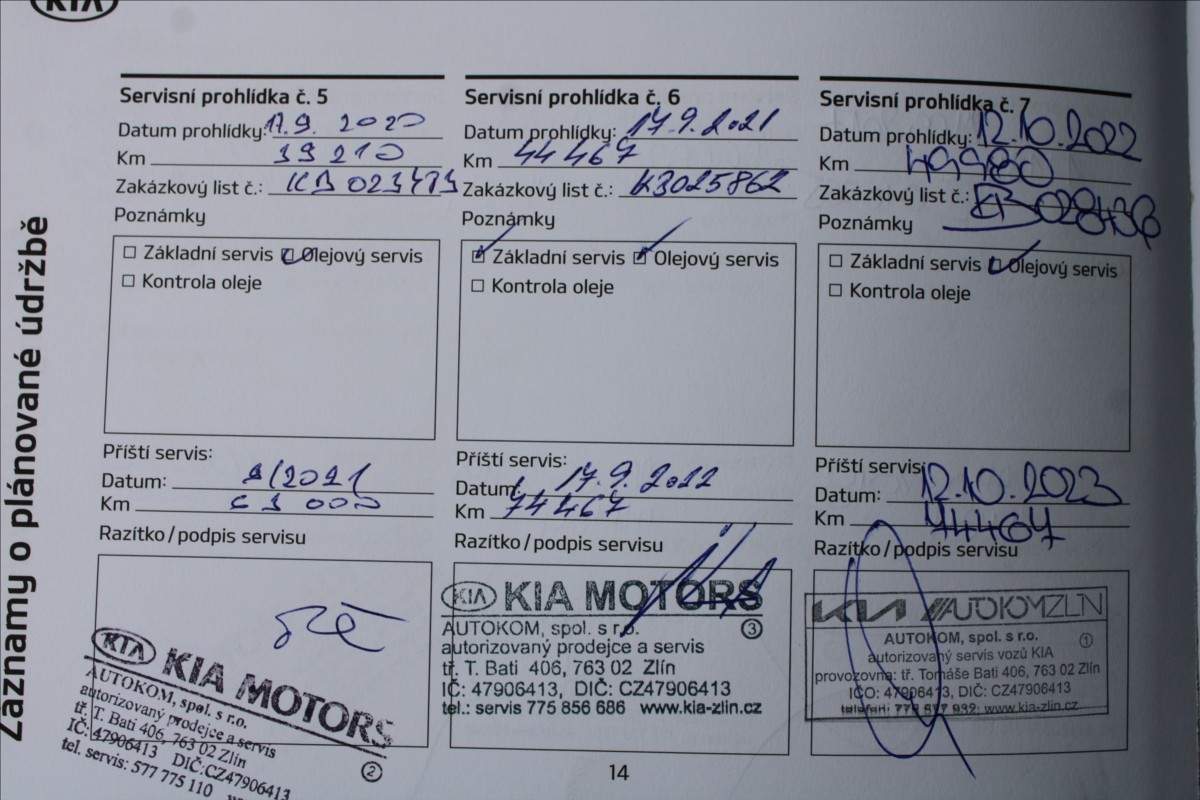 KIA
Záznamy o plánované údržbě
Servisní prohlídka č. 5
Datum prohlídky: 17.9. 2020
Km 39 210
Zakázkový list č.:
Poznámky
Základní servis Olejový servis
Kontrola oleje
Příští servis:
Datum: 9/2021
Km 63 000
Razítko/podpis servisu
KIA KIA MOTORS
AUTOKOM, spol. s r.o.
autorizovaný prodejce a servis
tř. T. Bati 406, 763 02 Zlín
IČ: 47906413 DIČ:CZ47906413
tel. servis: 577 775 110
2
Servisní prohlídka č. 6
Datum prohlídky: 17.9.2021
Km 44 467
Zakázkový list č.: K3025862
Poznámky
Základní servis Olejový servis
Kontrola oleje
Příští servis:
Datum: 17.9.2022
Km 74467
Razítko/podpis servisu
KIA KIA MOTORS
AUTOKOM, spol. s r.o. 3
autorizovaný prodejce a servis
tř. T. Bati 406, 763 02 Zlín
IČ: 47906413, DIČ: CZ47906413
tel.: servis 775 856 686 www.kia-zlin.cz
Servisní prohlídka č. 7
Datum prohlídky: 12.10.2022
Km 49980
Zakázkový list č.:
Poznámky
Základní servis Olejový servis
Kontrola oleje
Příští servis:
Datum: 12.10.2023
Km 74467
Razítko/podpis servisu
KIA AUTOKOMZLÍN
AUTOKOM, spol. s r.o. 1
autorizovaný servis vozů KIA
provozovna: tř. Tomáše Bati 406, 763 02 Zlín
IČO: 47906413, DIČ: CZ47906413
telefon: www.kia-zlin.cz
14